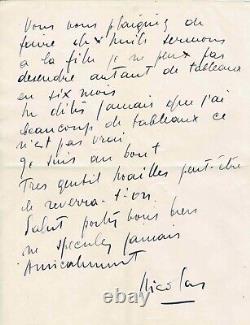 Vous vous plaignez de
faire dix huit sermons
a la film je ne peux pas
descendre autant de tableaux
en six mois
ne dites jamais que j'ai
beaucoup de tableaux ce
n'est pas vrai
je suis au bout
Tres gentil Noailles peut-être
se reverra-t-on
Salut portez vous bien
ne speculez jamais
Amicalement
Nicolas
© picclick-fr.com